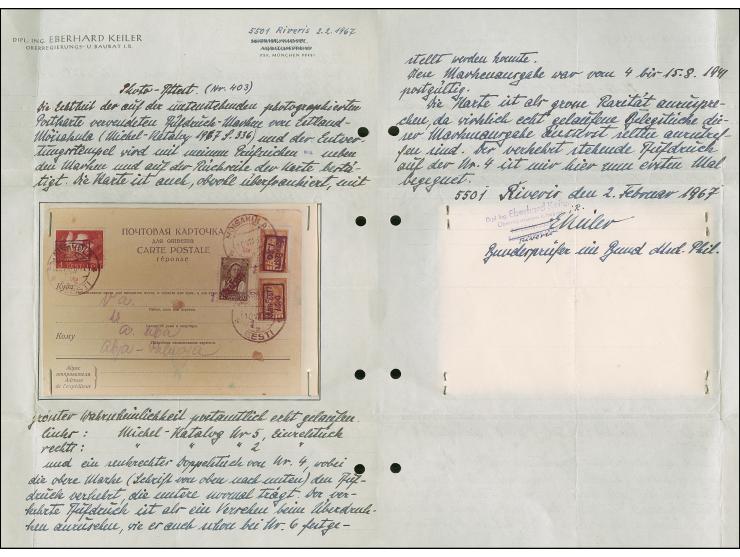 DIPL. ING. EBERHARD KEILER
OBERREGIERUNGS- U BAURAT I.R.
5501 Riveris 2.2.1967
Photo-Attest. (Nr. 403)
Die Echtheit der auf der untenstehenden photographierten
Postkarte verwendeten Aufdruck-Marken von Estland-
Mõisaküla (Michel-Katalog 1967 S. 336) und der Entwer-
tungsstempel wird mit meinem Prüfzeichen neben
den Marken und auf der Rückseite der Karte bestä-
tigt. Die Karte ist auch, obwohl überfrankiert, mit
ПОЧТОВАЯ КАРТОЧКА
для ответа
CARTE POSTALE
réponse
EESTI
Куда
Кому
Abja-Paluoja
Адрес
отправителя
Adresse
de l'expéditeur
grösster Wahrscheinlichkeit postamtlich echt gelaufen.
links: Michel-Katalog Nr 5, Einzelstück
rechts: " " " 2 "
und ein senkrechter Doppelstück von Nr. 4, wobei
die obere Marke (Schrift von oben nach unten) den Auf-
druck verkehrt, die untere normal trägt. Der ver-
kehrte Aufdruck ist als ein Versehen beim Überdruk-
ken anzusehen, wie er auch schon bei Nr. 6 festge-
stellt werden konnte.
Die Markenausgabe war vom 4 bis 15.8. 1941
postgültig.
Die Karte ist als grosse Rarität anzuspre-
chen, da wirklich echt gelaufene Belegstücke die-
ser Markenausgabe äusserst selten anzutref-
fen sind. Der verkehrt stehende Aufdruck
auf der Nr. 4 ist mir hier zum ersten Mal
begegnet.
5501 Riveris den 2. Februar 1967
Dipl. Ing. Eberhard Keiler
i.R.
Riveris
EKeiler
Bundesprüfer im Bund dtsch. Phil.